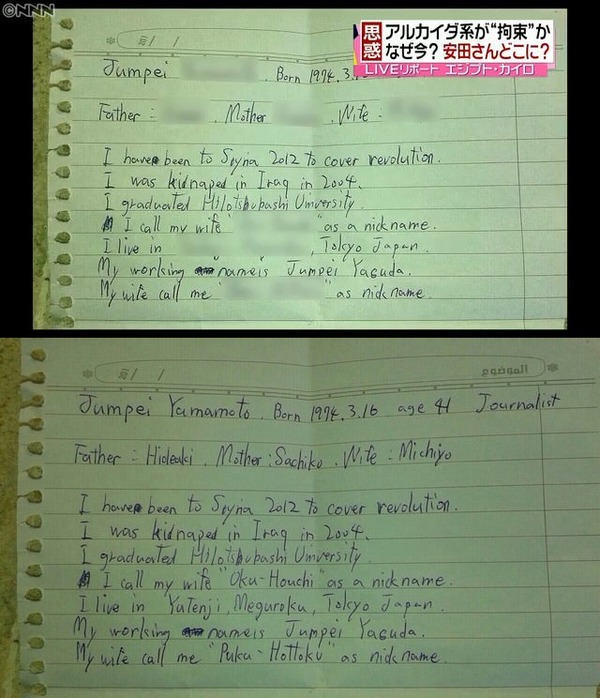 ©NNN
思惑
アルカイダ系が“拘束”か
なぜ今? 安田さんどこに?
LIVEリポート エジプト・カイロ
/ /
Jumpei , Born 1974.3.16
Father = , Mother , Wife =
I have been to Syria 2012 to cover revolution.
I was kidnaped in Iraq in 2004.
I graduated Hitotsubashi University
I call my wife " " as a nickname.
I live in , Tokyo Japan.
My working "name is Jumpei Yasuda.
My wife call me " as nickname.
/ /
الموضوع
Jumpei Yamamoto, Born 1974.3.16 age 41 Journalist
Father = Hideaki, Mother: Sachiko, Wife = Michiyo
I have been to Syria 2012 to cover revolution.
I was kidnaped in Iraq in 2004.
I graduated Hitotsubashi University
I call my wife "Oku-Houchi" as a nickname.
I live in Yutenji, Meguroku, Tokyo Japan.
My working name is Jumpei Yasuda.
My wife call me "Puku-Hottoku" as nickname.